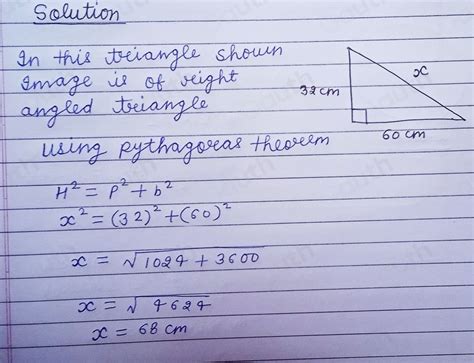 Solution
In this triangle shown
Image is of right
angled triangle
32 cm
x
60 cm
using pythagoreas theorem
H² = P² + b²
x² = (32)² + (60)²
x = √1024 + 3600
x = √4624
x = 68 cm